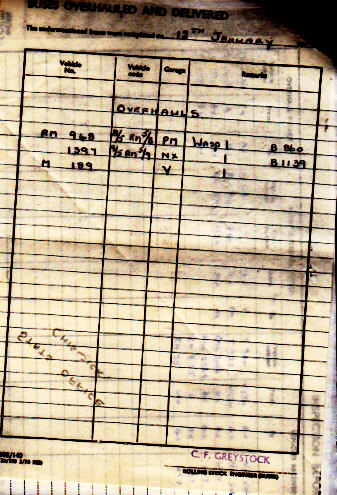 BUSES OVERHAULED AND DELIVERED
The undermentioned buses were completed on 12TH JANUARY
Vehicle No. Vehicle code Garage Remarks
OVERHAULS
RM 968 8/5 RM 5/8 PM WASP 1 B 960
1397 9/5 RM 5/9 NX 1 B 1139
M 189 V 1
CHISWICK
STATS OFFICE
C. F. GREYSTOCK
ROLLING STOCK ENGINEER (BUSES)